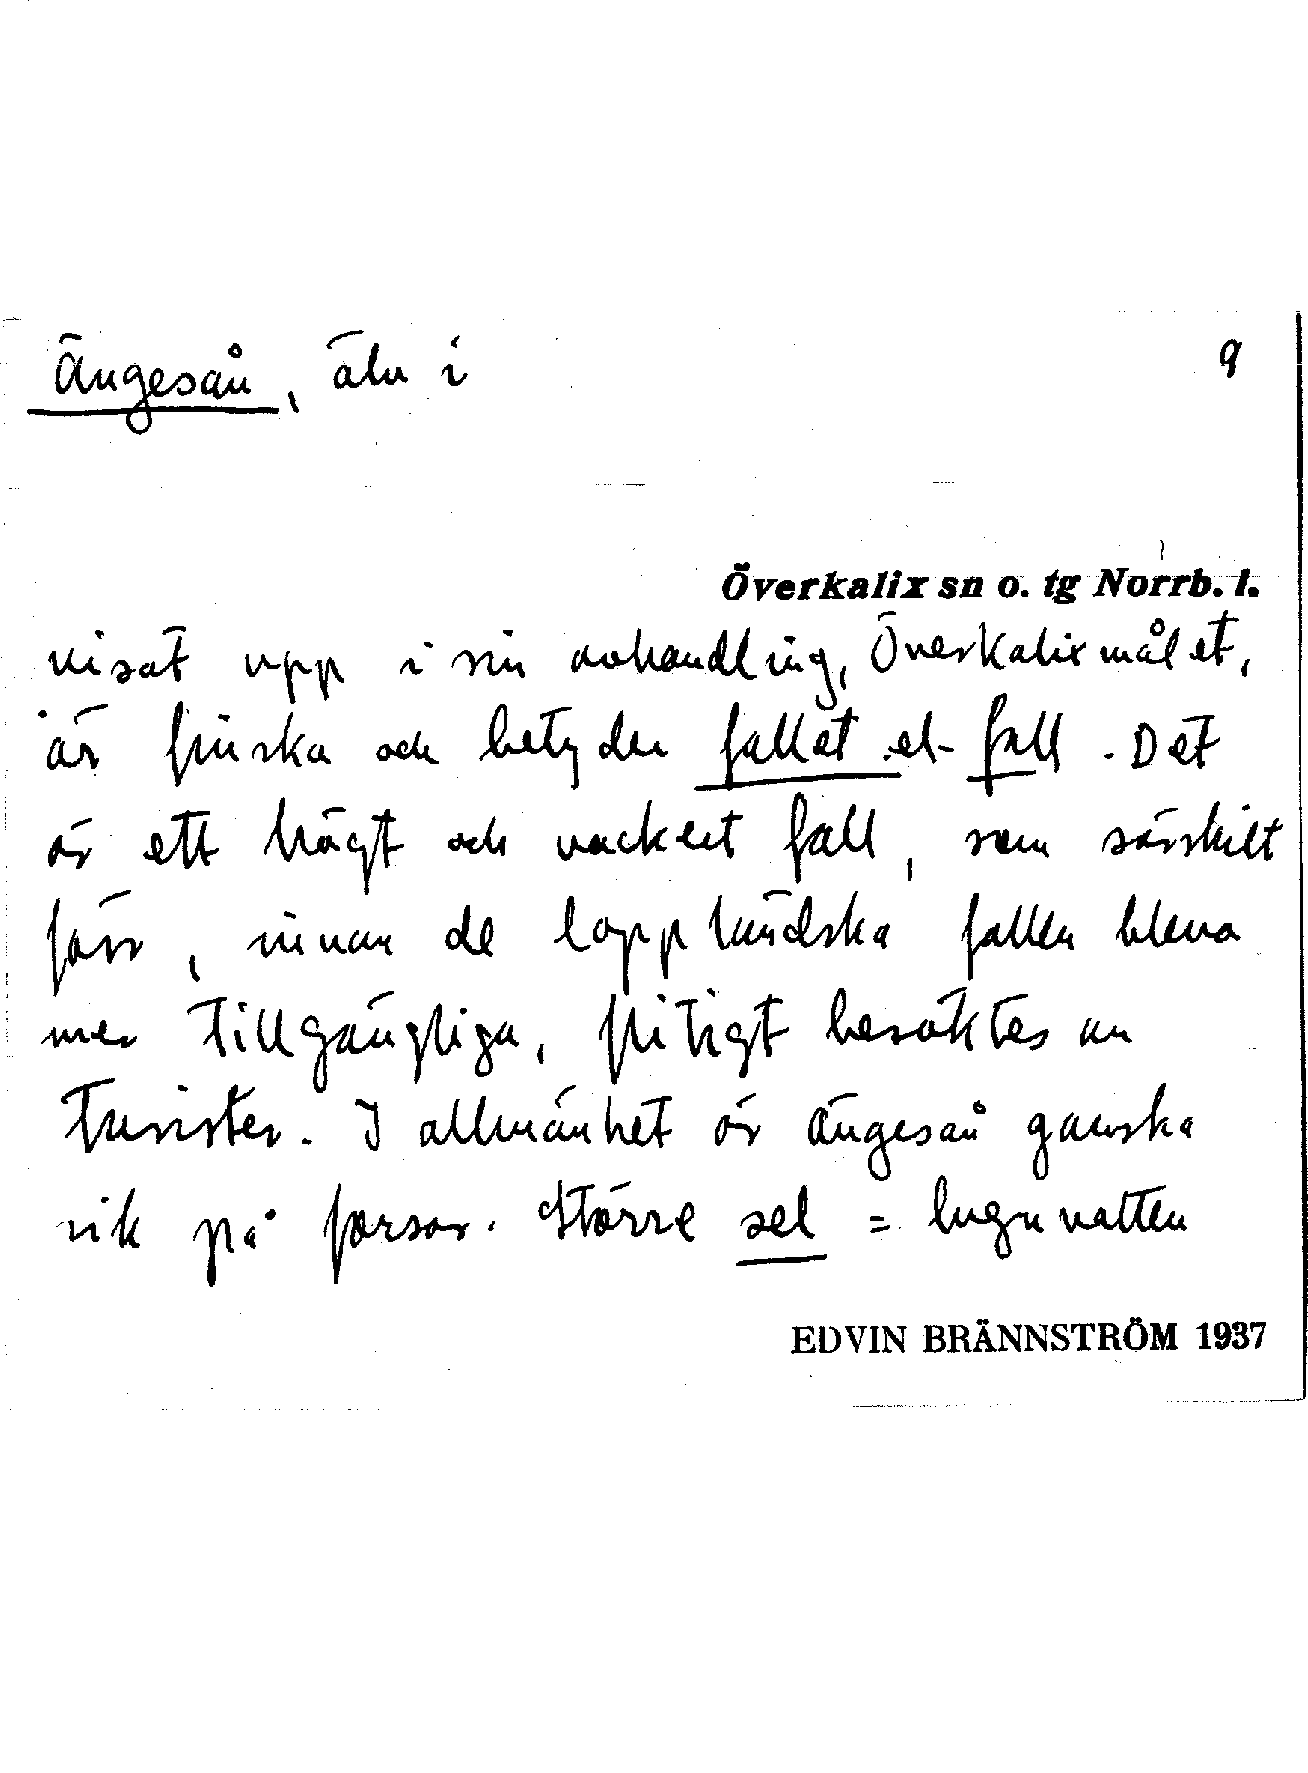 Ängesån, älv i
9
Överkalix sn o. tg Norrb. l.
visat upp i sin avhandling, Överkalixmålet,
är finska och betyder fallet el. fall. Det
är ett högt och vackert fall, som särskilt
förr, innan de lappländska fallen bleva
mer tillgängliga, flitigt besöktes av
turister. I allmänhet är Ängesån ganska
rik på forsar. Större sel = lugnvatten
EDVIN BRÄNNSTRÖM 1937